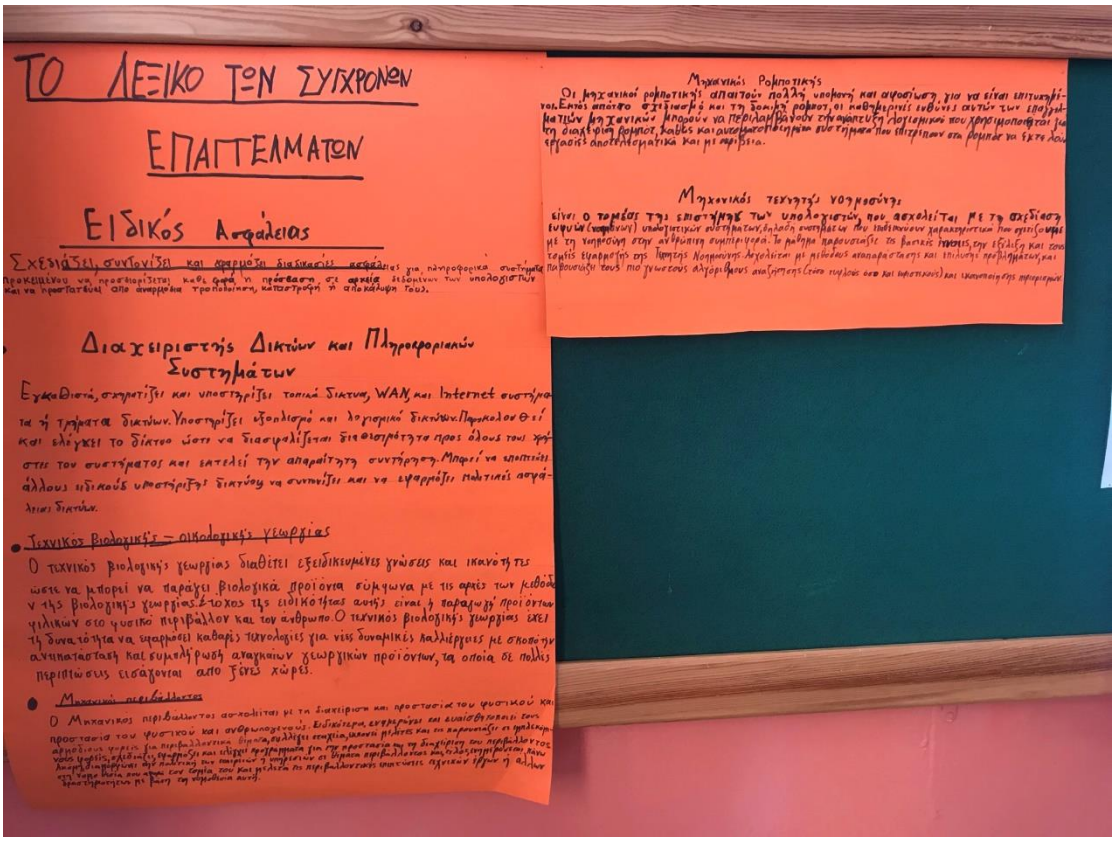 ΤΟ ΛΕΞΙΚΟ ΤΩΝ ΣΥΓΧΡΟΝΩΝ
ΕΠΑΓΓΕΛΜΑΤΩΝ
Ειδικός Ασφάλειας
Σχεδιάζει, συντονίζει και εφαρμόζει διαδικασίες ασφάλειας για πληροφορικά συστήματα
προκειμένου να προσδιορίζεται κάθε φορά η πρόσβαση σε αρχεία δεδομένων των υπολογιστών
και να προστατεύει απο αναρμόδια τροποποίηση, καταστροφή ή αποκάλυψη τους.
Διαχειριστής Δικτύων και Πληροφοριακών
Συστημάτων
Εγκαθιστά, σχηματίζει και υποστηρίζει τοπικά δικτυα, WAN, και Internet συστήμα
τα ή τμήματα δικτύων. Υποστηρίζει εξοπλισμό και λογισμικό δικτύων. Παρακολουθεί
και ελέγχει το δίκτυο ώστε να διασφαλίζεται διαθεσιμότητα προς όλους τους χρή-
στες του συστήματος και εκτελεί την απαραίτητη συντήρηση. Μπορεί να εποπτεύει
άλλους ειδικούς υποστήριξης δικτύου να συντονίζει και να εφαρμόζει πολιτικός ασφά-
λειας δικτύων.
Τεχνικός βιολογικής – οικολογικής γεωργίας
Ο τεχνικός βιολογικής γεωργίας διαθέτει εξειδικευμένες γνώσεις και ικανότητες
ώστε να μπορεί να παράγει βιολογικά προϊόντα σύμφωνα με τις αρχές των μεθόδω
ν της βιολογικής γεωργίας. Στοχος της ειδικότητας αυτής είναι ή παραγωγή προϊόντων
φιλικών στο φυσικό περιβάλλον και τον άνθρωπο. Ο τεχνικός βιολογικής γεωργίας έχει
τη δυνατότητα να εφαρμόσει καθαρές τεχνολογίες για νέες δυναμικές καλλιέργειες με σκοπό την
αντικατάσταση και συμπλήρωση αναγκαίων γεωργικών προϊόντων, τα οποία σε πολλές
περιπτώσεις εισάγονται απο ξένες χώρες.
Μηχανικού περιβάλλοντος
Ο Μηχανικός περιβάλλοντος ασχολείται με τη διαχείριση και προστασία του φυσικού και
προστασία του φυσικού και ανθρωπογενούς. Ειδικότερα, ενημερώνει και ευαισθητοποιεί τους
αρμόδιους φορείς για περιβαλλοντικά θέματα, συλλέγει στοιχεία, εκπονεί μελέτες και τις παρουσιάζει σε
νους φορείς, σχεδιάζει, εφαρμόζει και ελέγχει προγράμματα για την προστασία και τη διαχείριση του περιβάλλοντος
διαμορφώνει την πολιτική των εταιρειών ή υπηρεσιών σε θέματα περιβάλλοντος και, τέλος, πάνω
στη νομοθεσία που αφορά τον τομέα του και μελετά τις περιβαλλοντικές επιπτώσεις τεχνικών έργων ή άλλων
δραστηριοτήτων με βάση τη νομοθεσία αυτή.
Μηχανικός Ρομποτικής
Οι μηχανικοί ρομποτικής απαιτούν πολλή υπομονή και αφοσίωση, για να είναι επιτυχημέ-
νοι. Εκτός από το σχεδιασμό και τη δοκιμή ρομπότ, οι καθημερινές ευθύνες αυτών των επαγγελ-
ματιών μηχανικών μπορούν να περιλαμβάνουν την ανάπτυξη λογισμικού που χρησιμοποιείται για
τη διαχείριση ρομπότ, καθώς και αυτοματοποιημένα συστήματα που επιτρέπουν στα ρομπότ να εκτελούν
εργασίες αποτελεσματικά και με ακρίβεια.
Μηχανικός τεχνητής νοημοσύνης
είναι ο τομέας της επιστήμης των υπολογιστών, που ασχολείται με τη σχεδίαση
ευφυών (νοημόνων) υπολογιστικών συστημάτων, δηλαδή συστημάτων που επιδεικνύουν χαρακτηριστικά που σχετίζουμε
με τη νοημοσύνη στην ανθρώπινη συμπεριφορά. Το μάθημα παρουσιάζει τις βασικές έννοιες, την εξέλιξη και τους
τομείς εφαρμογής της Τεχνητής Νοημοσύνης. Ασχολείται με μεθόδους αναπαράστασης και επίλυσης προβλημάτων, και
παρουσιάζει τους πιο γνωστούς αλγορίθμους αναζήτησης (τόσο τυφλούς όσο και ευριστικούς) και ικανοποίησης περιορισμών.